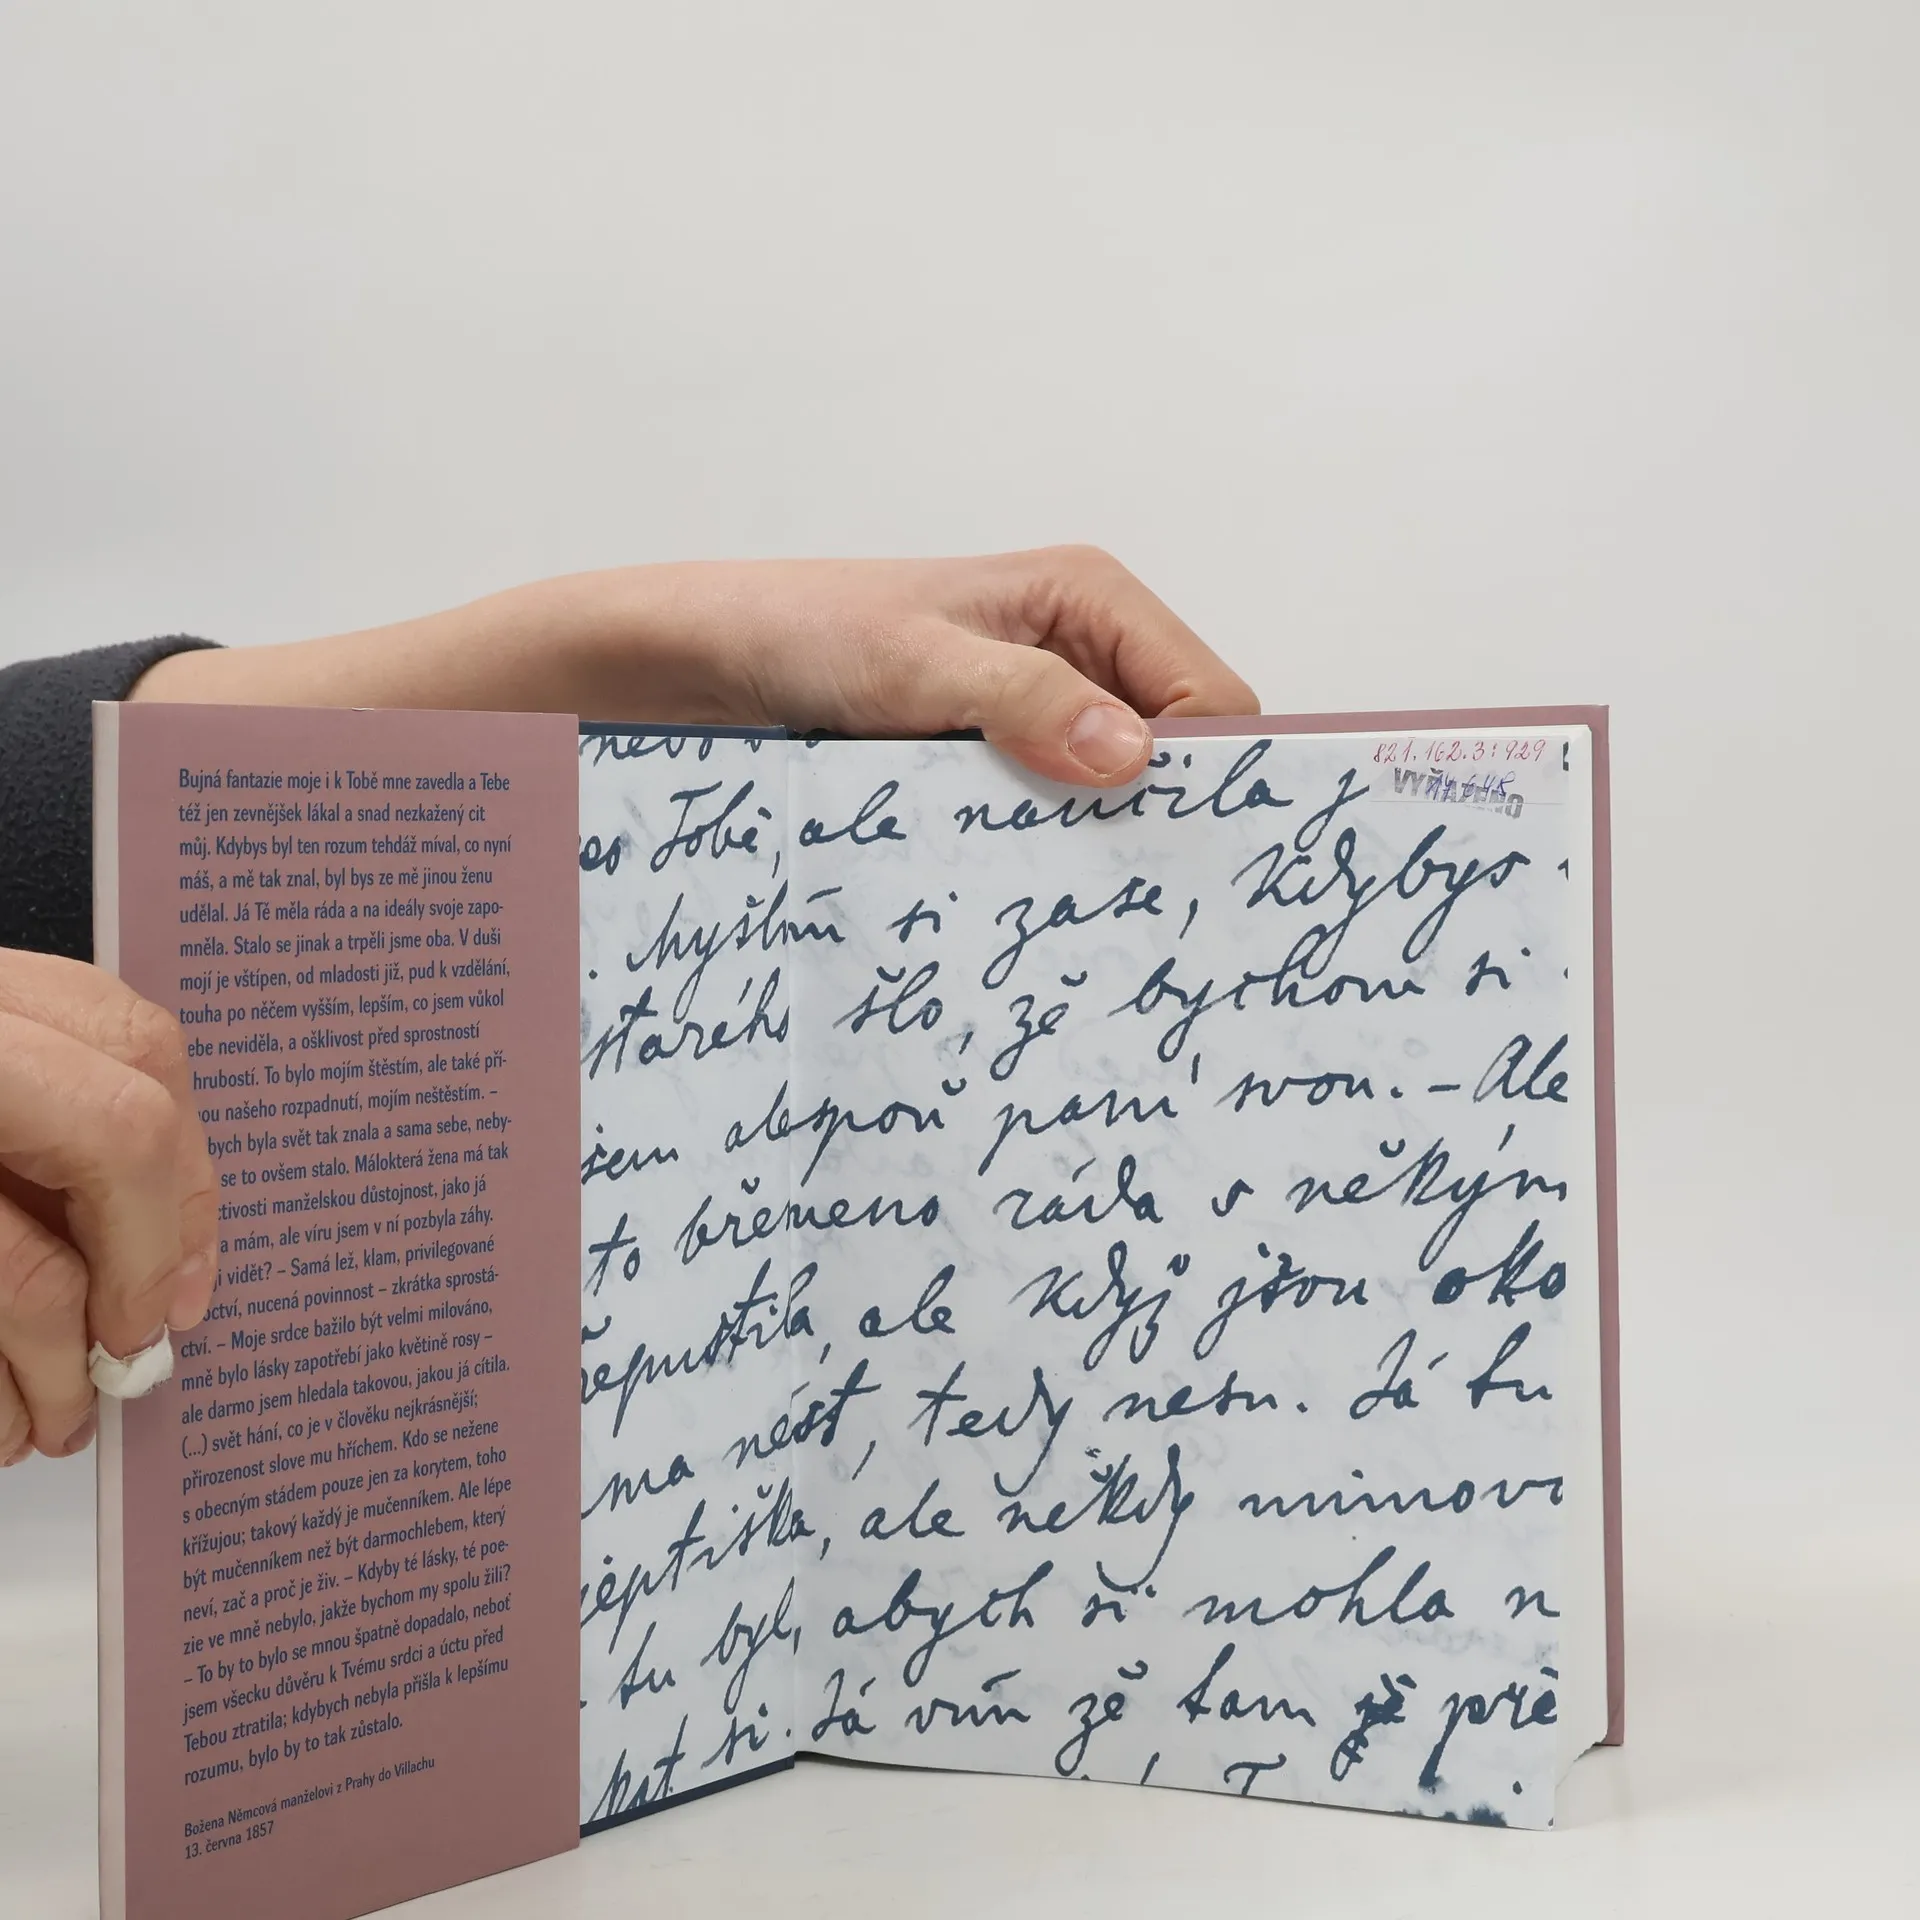 Bujná fantazie moje i k Tobě mne zavedla a Tebe
též jen zevnějšek lákal a snad nezkažený cit
můj. Kdybys byl ten rozum tehdáž míval, co nyní
máš, a mě tak znal, byl bys ze mě jinou ženu
udělal. Já Tě měla ráda a na ideály svoje zapo-
mněla. Stalo se jinak a trpěli jsme oba. V duši
mojí je vštípen, od mladosti již, pud k vzdělání,
touha po něčem vyšším, lepším, co jsem vůkol
ebe neviděla, a ošklivost před sprostností
hrubostí. To bylo mojím štěstím, ale také pří-
nou našeho rozpadnutí, mojím neštěstím. –
bych byla svět tak znala a sama sebe, neby-
se to ovšem stalo. Málokterá žena má tak
ctivosti manželskou důstojnost, jako já
a mám, ale víru jsem v ní pozbyla záhy.
ji vidět? – Samá lež, klam, privilegované
octví, nucená povinnost – zkrátka sprostá-
ctví. – Moje srdce bažilo být velmi milováno,
mně bylo lásky zapotřebí jako květině rosy –
ale darmo jsem hledala takovou, jakou já cítila.
(...) svět hání, co je v člověku nejkrásnější;
přirozenost slove mu hříchem. Kdo se nežene
s obecným stádem pouze jen za korytem, toho
křížujou; takový každý je mučenníkem. Ale lépe
být mučenníkem než být darmochlebem, který
neví, zač a proč je živ. – Kdyby té lásky, té poe-
zie ve mně nebylo, jakže bychom my spolu žili?
– To by to bylo se mnou špatně dopadalo, neboť
jsem všecku důvěru k Tvému srdci a úctu před
Tebou ztratila; kdybych nebyla přišla k lepšímu
rozumu, bylo by to tak zůstalo.
Božena Němcová manželovi z Prahy do Villachu
13. června 1857
821.162.3:929
VYŘAZENO
es Tobě, ale naučila j
. Myslím si zase, kdybys
starého šlo, že bychom si
sem alespoň paní svou. – Ale
to břemeno ráda s někým
řepustila, ale když jsou oko
ma nést, tedy nesu. Já tu
jeptiška, ale někdy mimovo
tu byl, abych si mohla n
kat si. Já vím že tam je pře